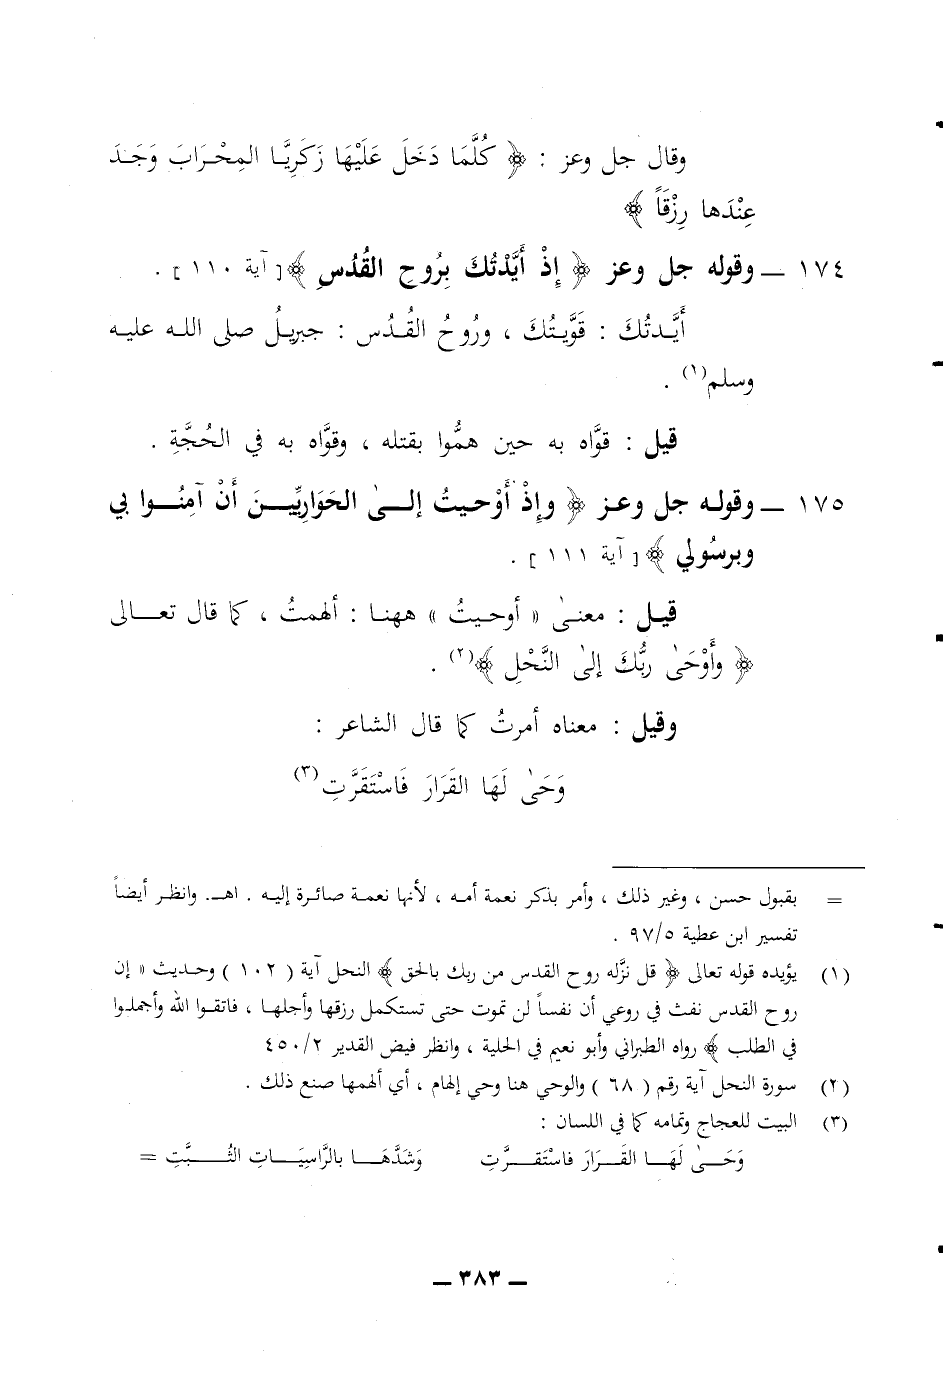 وقال جل وعز : ﴿ كُلَّمَا دَخَلَ عَلَيْهَا زَكَرِيَّا المِحْرَابَ وَجَدَ
عِنْدَها رِزْقَاً ﴾
١٧٤ ــ وقوله جل وعز ﴿ إِذْ أَيَّدْتُكَ بِرُوحِ القُدُسِ ﴾ [ آية ١١٠ ] .
أَيَّدتُكَ : قَوَّيتُكَ ، ورُوحُ القُدُس : جبريلُ صلى الله عليه
وسلم(١) .
قيل : قوَّاه به حين همُّوا بقتله ، وقوَّاه به في الحُجَّةِ .
١٧٥ ــ وقوله جل وعز ﴿ وإِذْ أَوْحيتُ إلىٰ الحَوَارِيِّينَ أَنْ آمِنُوا بي
وبرسُولي ﴾ [ آية ١١١ ] .
قيل : معنىٰ « أوحيتُ » ههنا : ألهمتُ ، كما قال تعالى
﴿ وأَوْحَىٰ ربُّكَ إلىٰ النَّحْلِ ﴾(٢) .
وقيل : معناه أمرتُ كما قال الشاعر :
وَحَىٰ لَهَا القَرَارَ فَاسْتَقَرَّتِ(٣)
= بقبول حسن ، وغير ذلك ، وأمر بذكر نعمة أمه ، لأنها نعمة صائرة إليه . اهـ. وانظر أيضاً
تفسير ابن عطية ٩٧/٥ .
(١) يؤيده قوله تعالى ﴿ قل نزَّله روح القدس من ربك بالحق ﴾ النحل آية ( ١٠٢ ) وحديث « إن
روح القدس نفث في روعي أن نفساً لن تموت حتى تستكمل رزقها وأجلها ، فاتقوا الله وأجملوا
في الطلب ﴾ رواه الطبراني وأبو نعيم في الحلية ، وانظر فيض القدير ٤٥٠/٢
(٢) سورة النحل آية رقم ( ٦٨ ) والوحي هنا وحي إلهام ، أي ألهمها صنع ذلك .
(٣) البيت للعجاج وتمامه كما في اللسان :
وَحَىٰ لَهَا القَرَارَ فاسْتَقَرَّتِ وَشَدَّهَا بالرَّاسِيَاتِ الثُّبَّتِ =
ــ ٣٨٣ ــ